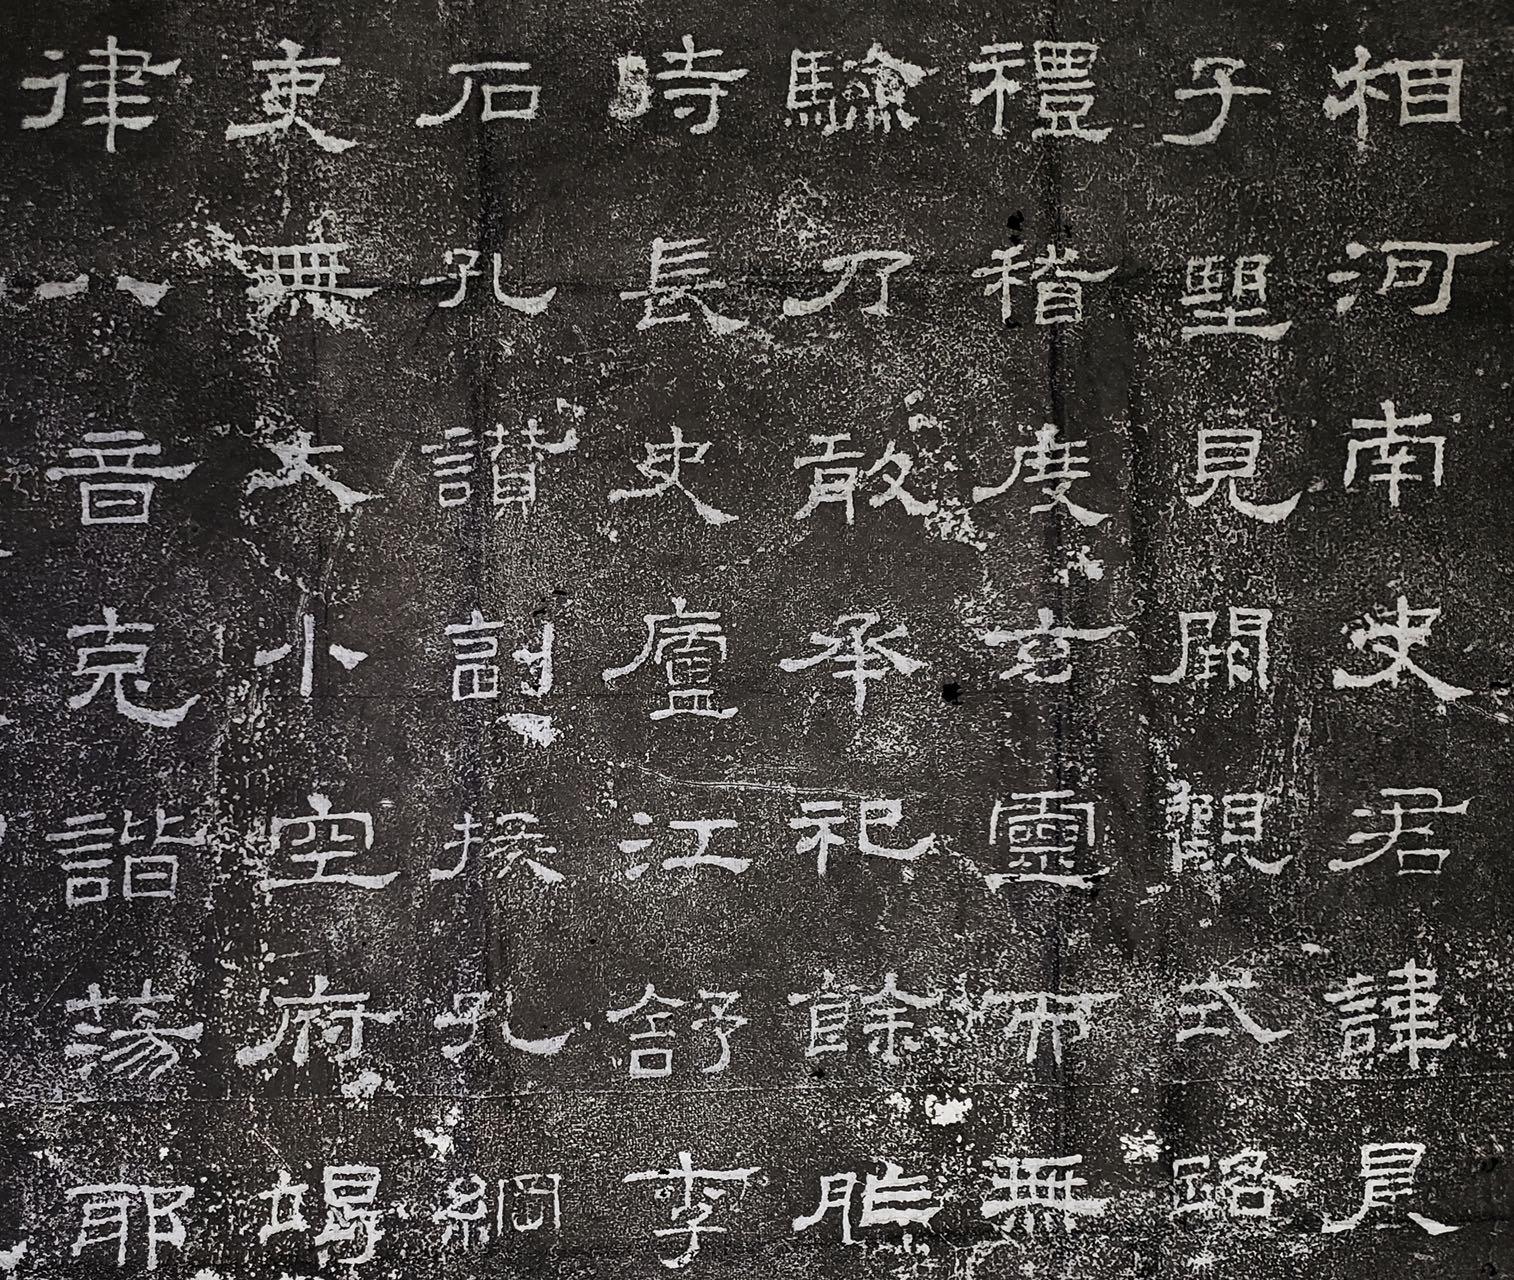 相河南史君諱晨
子望見闕觀式路
禮稽度玄靈而無
驗乃敢承祀餘胙
時長史廬江舒李
石孔讃副掾孔綱
吏無大小空府竭
律八音克諧蕩耶